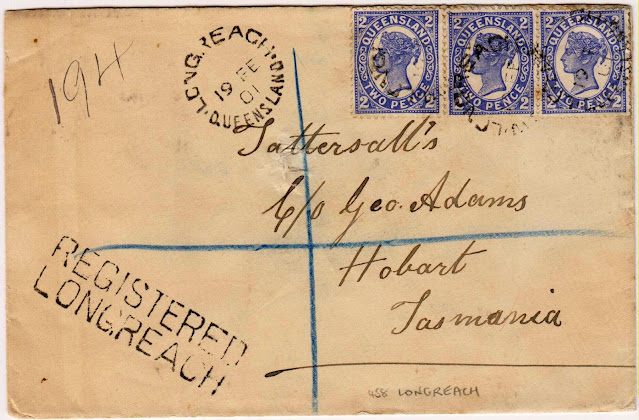 194
LONGREACH
19 FE
01
QUEENSLAND
QUEENSLAND
2 2
2 TWO PENCE 2
QUEENSLAND
2 2
2 TWO PENCE 2
QUEENSLAND
2 2
2 TWO PENCE 2
Tattersall's
C/o Geo. Adams
Hobart
Tasmania
REGISTERED
LONGREACH
458 LONGREACH